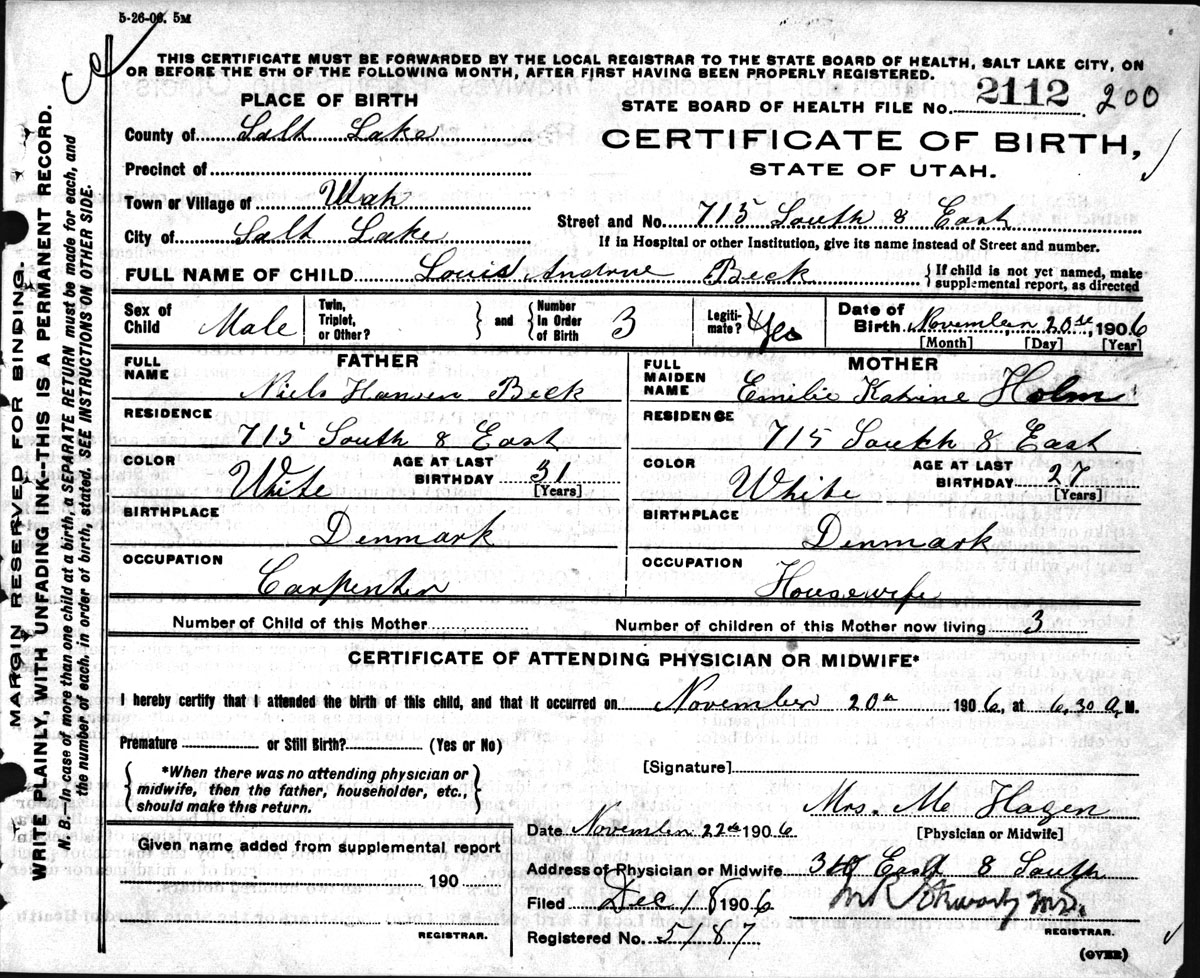 5-26-06. 5M
THIS CERTIFICATE MUST BE FORWARDED BY THE LOCAL REGISTRAR TO THE STATE BOARD OF HEALTH, SALT LAKE CITY, ON
OR BEFORE THE 5TH OF THE FOLLOWING MONTH, AFTER FIRST HAVING BEEN PROPERLY REGISTERED.
PLACE OF BIRTH
STATE BOARD OF HEALTH FILE No. 2112 200
County of Salt Lake
CERTIFICATE OF BIRTH,
STATE OF UTAH.
Precinct of
Town or Village of Utah
Street and No. 715 South 8 East
City of Salt Lake
If in Hospital or other Institution, give its name instead of Street and number.
FULL NAME OF CHILD Louis Andrue Beck
If child is not yet named, make
supplemental report, as directed
Sex of Child Male
Twin, Triplet, or Other? and Number In Order of Birth 3
Legitimate? Yes
Date of Birth November 20st 1906
[Month] [Day] [Year]
FATHER
FULL NAME Niels Hansen Beck
RESIDENCE
715 South 8 East
COLOR White
AGE AT LAST BIRTHDAY 31
[Years]
BIRTHPLACE
Denmark
OCCUPATION
Carpenter
MOTHER
FULL MAIDEN NAME Emilie Katrine Holm
RESIDENCE
715 South 8 East
COLOR White
AGE AT LAST BIRTHDAY 27
[Years]
BIRTHPLACE
Denmark
OCCUPATION
Housewife
Number of Child of this Mother
Number of children of this Mother now living 3
CERTIFICATE OF ATTENDING PHYSICIAN OR MIDWIFE*
I hereby certify that I attended the birth of this child, and that it occurred on November 20th 1906, at 6.30 A.M.
Premature or Still Birth? (Yes or No)
*When there was no attending physician or
midwife, then the father, householder, etc.,
should make this return.
[Signature]
Mrs. M Hagen
[Physician or Midwife]
Date November 22th 1906
Given name added from supplemental report
190
REGISTRAR.
Address of Physician or Midwife East 8 South
Filed Dec 18 1906
M.D.
REGISTRAR.
Registered No. 5187
(OVER)
MARGIN RESERVED FOR BINDING.
WRITE PLAINLY WITH UNFADING INK—THIS IS A PERMANENT RECORD.
N. B.—In case of more than one child at a birth, a SEPARATE RETURN must be made for each, and
the number of each, in order of birth, stated. SEE INSTRUCTIONS ON OTHER SIDE.